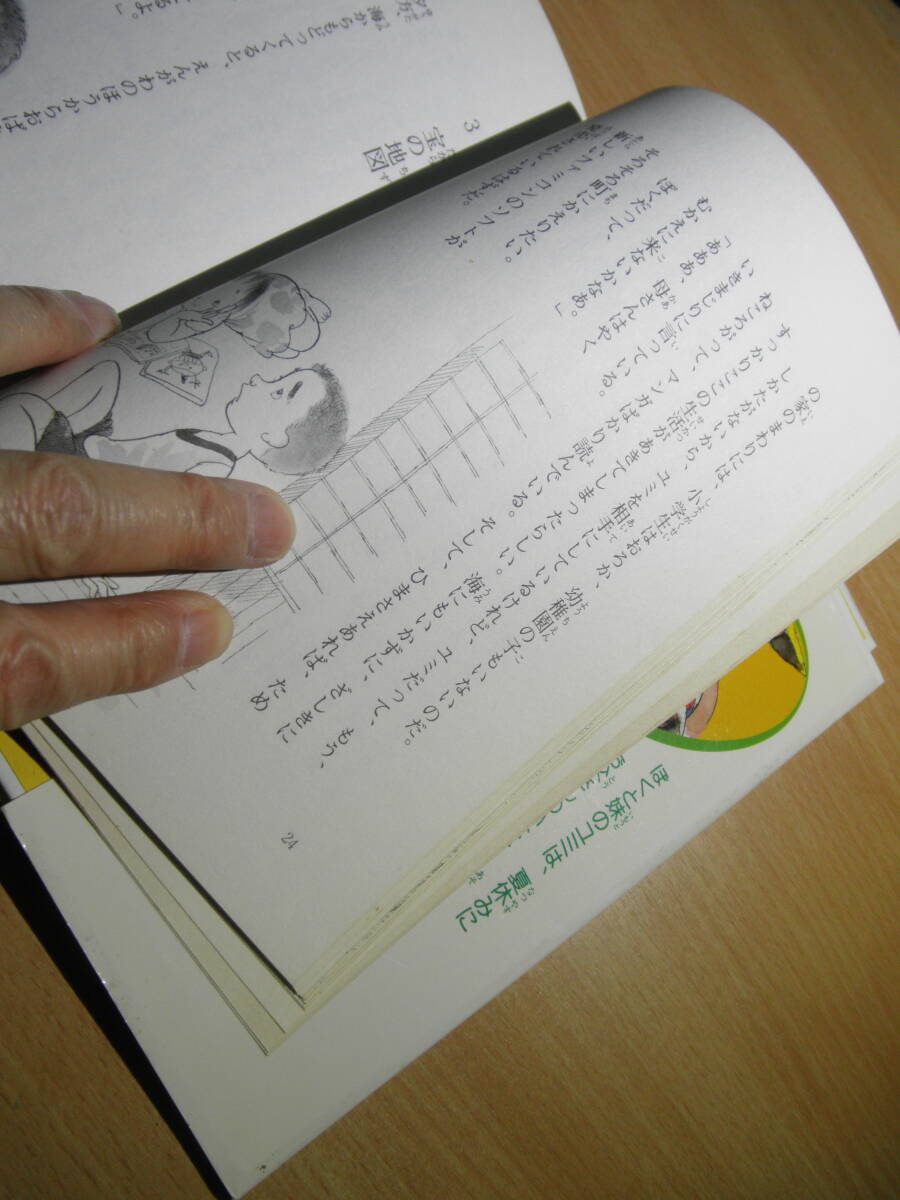 の家のまわりには、小学生はおろか、幼稚園の子もいないのだ。
しかたがないから、ユミを相手にしているけれど、ユミだって、もう、
すっかりここの生活があきてしまったらしい。海にもいかずに、ざしきに
ねころがって、マンガばかり読んでいる。そして、ひまさえあれば、ため
いきまじりに言っている。
「あああ、母さんはやく
むかえに来ないかなあ。」
ぼくだって、
そろそろ町にかえりたい。
新しいファミコンのソフトが
されているはずだ。
24
3 宝の地図
海からもどってくると、えんがわのほうからおば
るよ。」
ぼくと妹のユミは、夏休みに